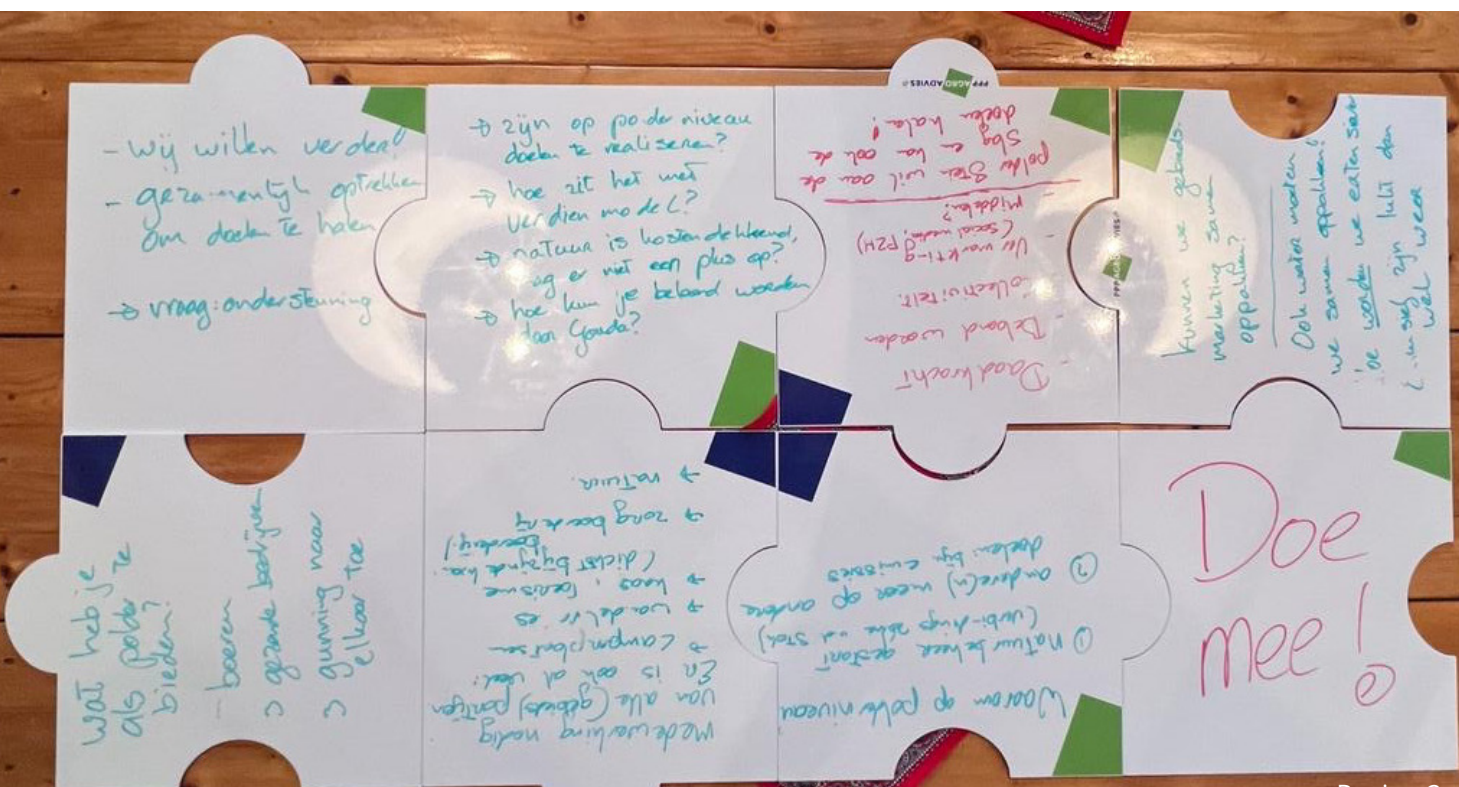 - Wij willen verder!
- gezamenlijk optrekken
om doelen te halen
→ vraag: ondersteuning
→ zijn op polder niveau
doelen te realiseren?
→ hoe zit het met
verdien model?
→ natuur is kostendekkend,
mag er niet een plus op?
→ hoe kun je beloond worden
door Gouda?
PPP AGRO ADVIES
- Daadkracht
- Beloond worden
- Collectiviteit.
- Vermarkting
(social media, PZH)
middelen?
polder Stein wil aan de
slag en kan ook de
doelen halen!
PPP AGRO ADVIES
kunnen we gebieds.
marketing samen
oppakken?
Ook water moeten
we samen oppakken!
Hoe worden we eaten
zijn lukt dan
wel weer
wat heb je
als polder te
bieden?
- boeren
> gezonde bedrijven
> gunning naar
elkaar toe
medewerking nodig
van alle (gebieds) partijen
Er is ook al veel:
→ Camperplaatsen
→ wandelroutes
→ kaas, toerisme
(dichtst bijzijnde
boerderij)
→ zorgboerderij
→ natuur.
Waarom op polderniveau
① Natuurbeheer gestart
(verbindings zone
② andere(n) meer op andere
doelen: bijv emissies
Doe
mee!